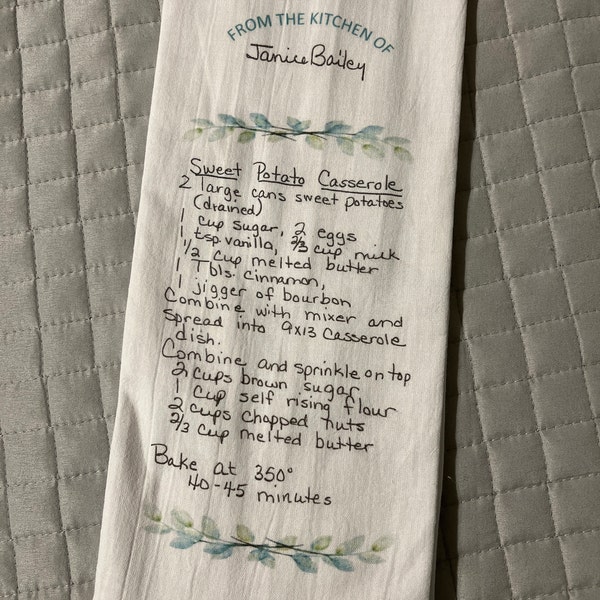 FROM THE KITCHEN OF
Janice Bailey
Sweet Potato Casserole
2 large cans sweet potatoes
(drained)
1 cup sugar, 2 eggs
1 tsp. vanilla, 2/3 cup milk
1/2 cup melted butter
1 Tbls. cinnamon,
1 jigger of bourbon
Combine with mixer and
spread into 9x13 casserole
dish.
Combine and sprinkle on top
2 cups brown sugar
1 cup self rising flour
2 cups chopped nuts
2/3 cup melted butter
Bake at 350°
40-45 minutes